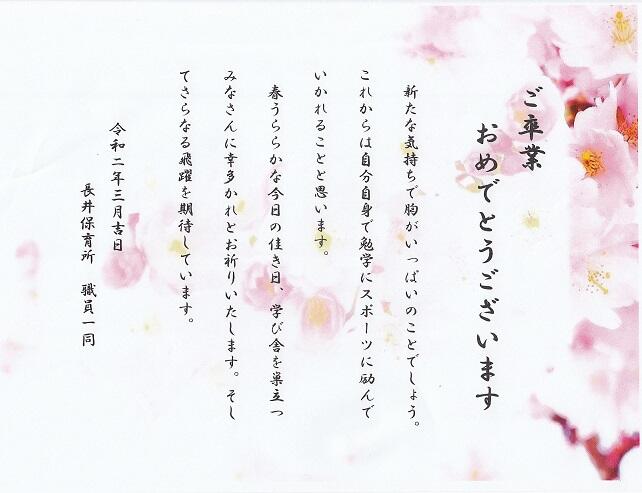 ご卒業
おめでとうございます
新たな気持ちで胸がいっぱいのことでしょう。
これからは自分自身で勉学にスポーツに励んで
いかれることと思います。
春うららかな今日の佳き日、学び舎を巣立つ
みなさんに幸多かれとお祈りいたします。そし
てさらなる飛躍を期待しています。
令和二年三月吉日
長井保育所　職員一同